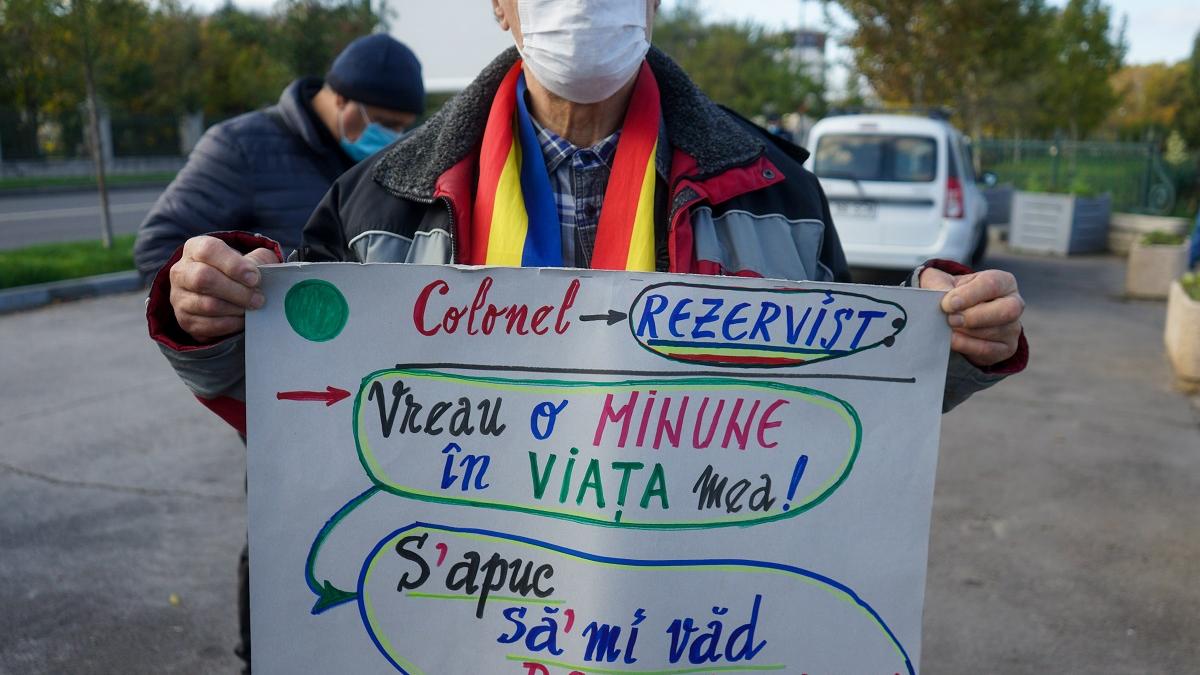 Colonel → REZERVIST
Vreau o MINUNE
în VIAȚA mea!
S'apuc
să'mi văd